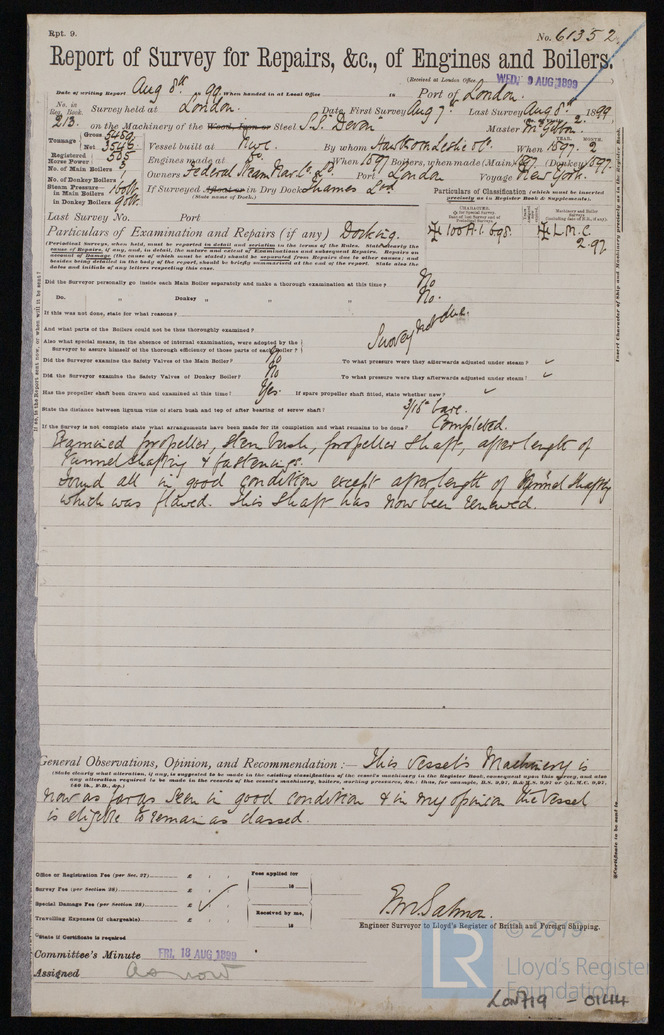 Rpt. 9.
No. 61352
Report of Survey for Repairs, &c., of Engines and Boilers.
(Received at London Office WED. 9 AUG 1899
Date of writing Report Aug 8th 1899 When handed in at Local Office 18 Port of London.
No. in Reg. Book. Survey held at London. Date, First Survey Aug 7th Last Survey Aug 8th 1899
213. on the Machinery of the Wood, Iron or Steel S.S. "Devon" Master McGibbon.
Tonnage Gross 5489 Net 3545 Vessel built at Nwc. By whom Hawthorn Leslie & Co. When 1897. 2
Registered Horse Power 505 Engines made at do. When 1897 Boilers, when made (Main) 1897 (Donkey) 1897.
No. of Main Boilers 3 Owners Federal Steam Nav. Co. Ld. Port London Voyage New York.
No. of Donkey Boilers 1
Steam Pressure in Main Boilers in Donkey Boilers If Surveyed Afloat or in Dry Dock Thames Ld
(State name of Dock.)
Particulars of Classification (which must be inserted precisely as in Register Book & Supplements).
Last Survey No. Port
Particulars of Examination and Repairs (if any) Docking.
100A.1. 6,98. L.M.C. 2.97
(Periodical Surveys, when held, must be reported in detail and seriatim in the terms of the Rules. State clearly the cause of Repairs, if any, and, in detail, the nature and extent of Examinations and subsequent Repairs. Repairs on account of Damage (the cause of which must be stated) should be separated from Repairs due to other causes; and besides being detailed in the body of the report, should be briefly summarised at the end of the report. State also the dates and initials of any letters respecting this case.
Did the Surveyor personally go inside each Main Boiler separately and make a thorough examination at this time? No
Do. " Donkey " " " " No.
If this was not done, state for what reasons? Survey not due.
And what parts of the Boilers could not be thus thoroughly examined?
Also what special means, in the absence of internal examination, were adopted by the Surveyor to assure himself of the thorough efficiency of those parts of each Boiler?
Did the Surveyor examine the Safety Valves of the Main Boiler? No To what pressure were they afterwards adjusted under steam?
Did the Surveyor examine the Safety Valves of Donkey Boiler? No To what pressure were they afterwards adjusted under steam?
Has the propeller shaft been drawn and examined at this time? Yes. If spare propeller shaft fitted, state whether new?
State the distance between lignum vitæ of stern bush and top of after bearing of screw shaft? 3/16" bare.
If the Survey is not complete state what arrangements have been made for its completion and what remains to be done? Completed.
Examined propeller, stern bush, propeller shaft, after length of
tunnel shafting & fastenings.
Found all in good condition except after length of tunnel shafting
which was flawed. This shaft has now been renewed.
General Observations, Opinion, and Recommendation:— This vessel's Machinery is
(State clearly what alteration, if any, is suggested to be made in the existing classification of the vessel's machinery in the Register Book, consequent upon this survey, and also any alteration required to be made in the records of the vessel's machinery, boilers, working pressures, &c.; thus, for example, B.S. 9,97; B.&M.S. 9,97 or L.M.C. 9,97, 140 lb., F.D., &c.)
now as far as seen in good condition & in my opinion the vessel
is eligible to remain as classed.
Office or Registration Fee (per Sec. 27) £ : :
Survey Fee (per Section 28) £ : :
Special Damage Fee (per Section 28) £ : :
Travelling Expenses (if chargeable) £ : :
Fees applied for 18
Received by me, 18
F.M. Salmon.
Engineer Surveyor to Lloyd's Register of British and Foreign Shipping.
State if Certificate is required
Committee's Minute FRI. 18 AUG 1899
Assigned as now
LR © 2019
Lloyd's Register
Foundation
LON719 - 0144